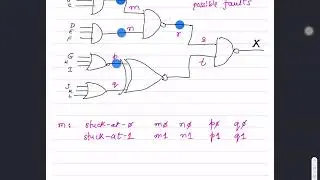 possible faults
m
D
E
F
n
r
s
X
G
H
I
p
t
J
K
L
q
m: stuck-at-0 m0 n0 p0 q0
stuck-at-1 m1 n1 p1 q1